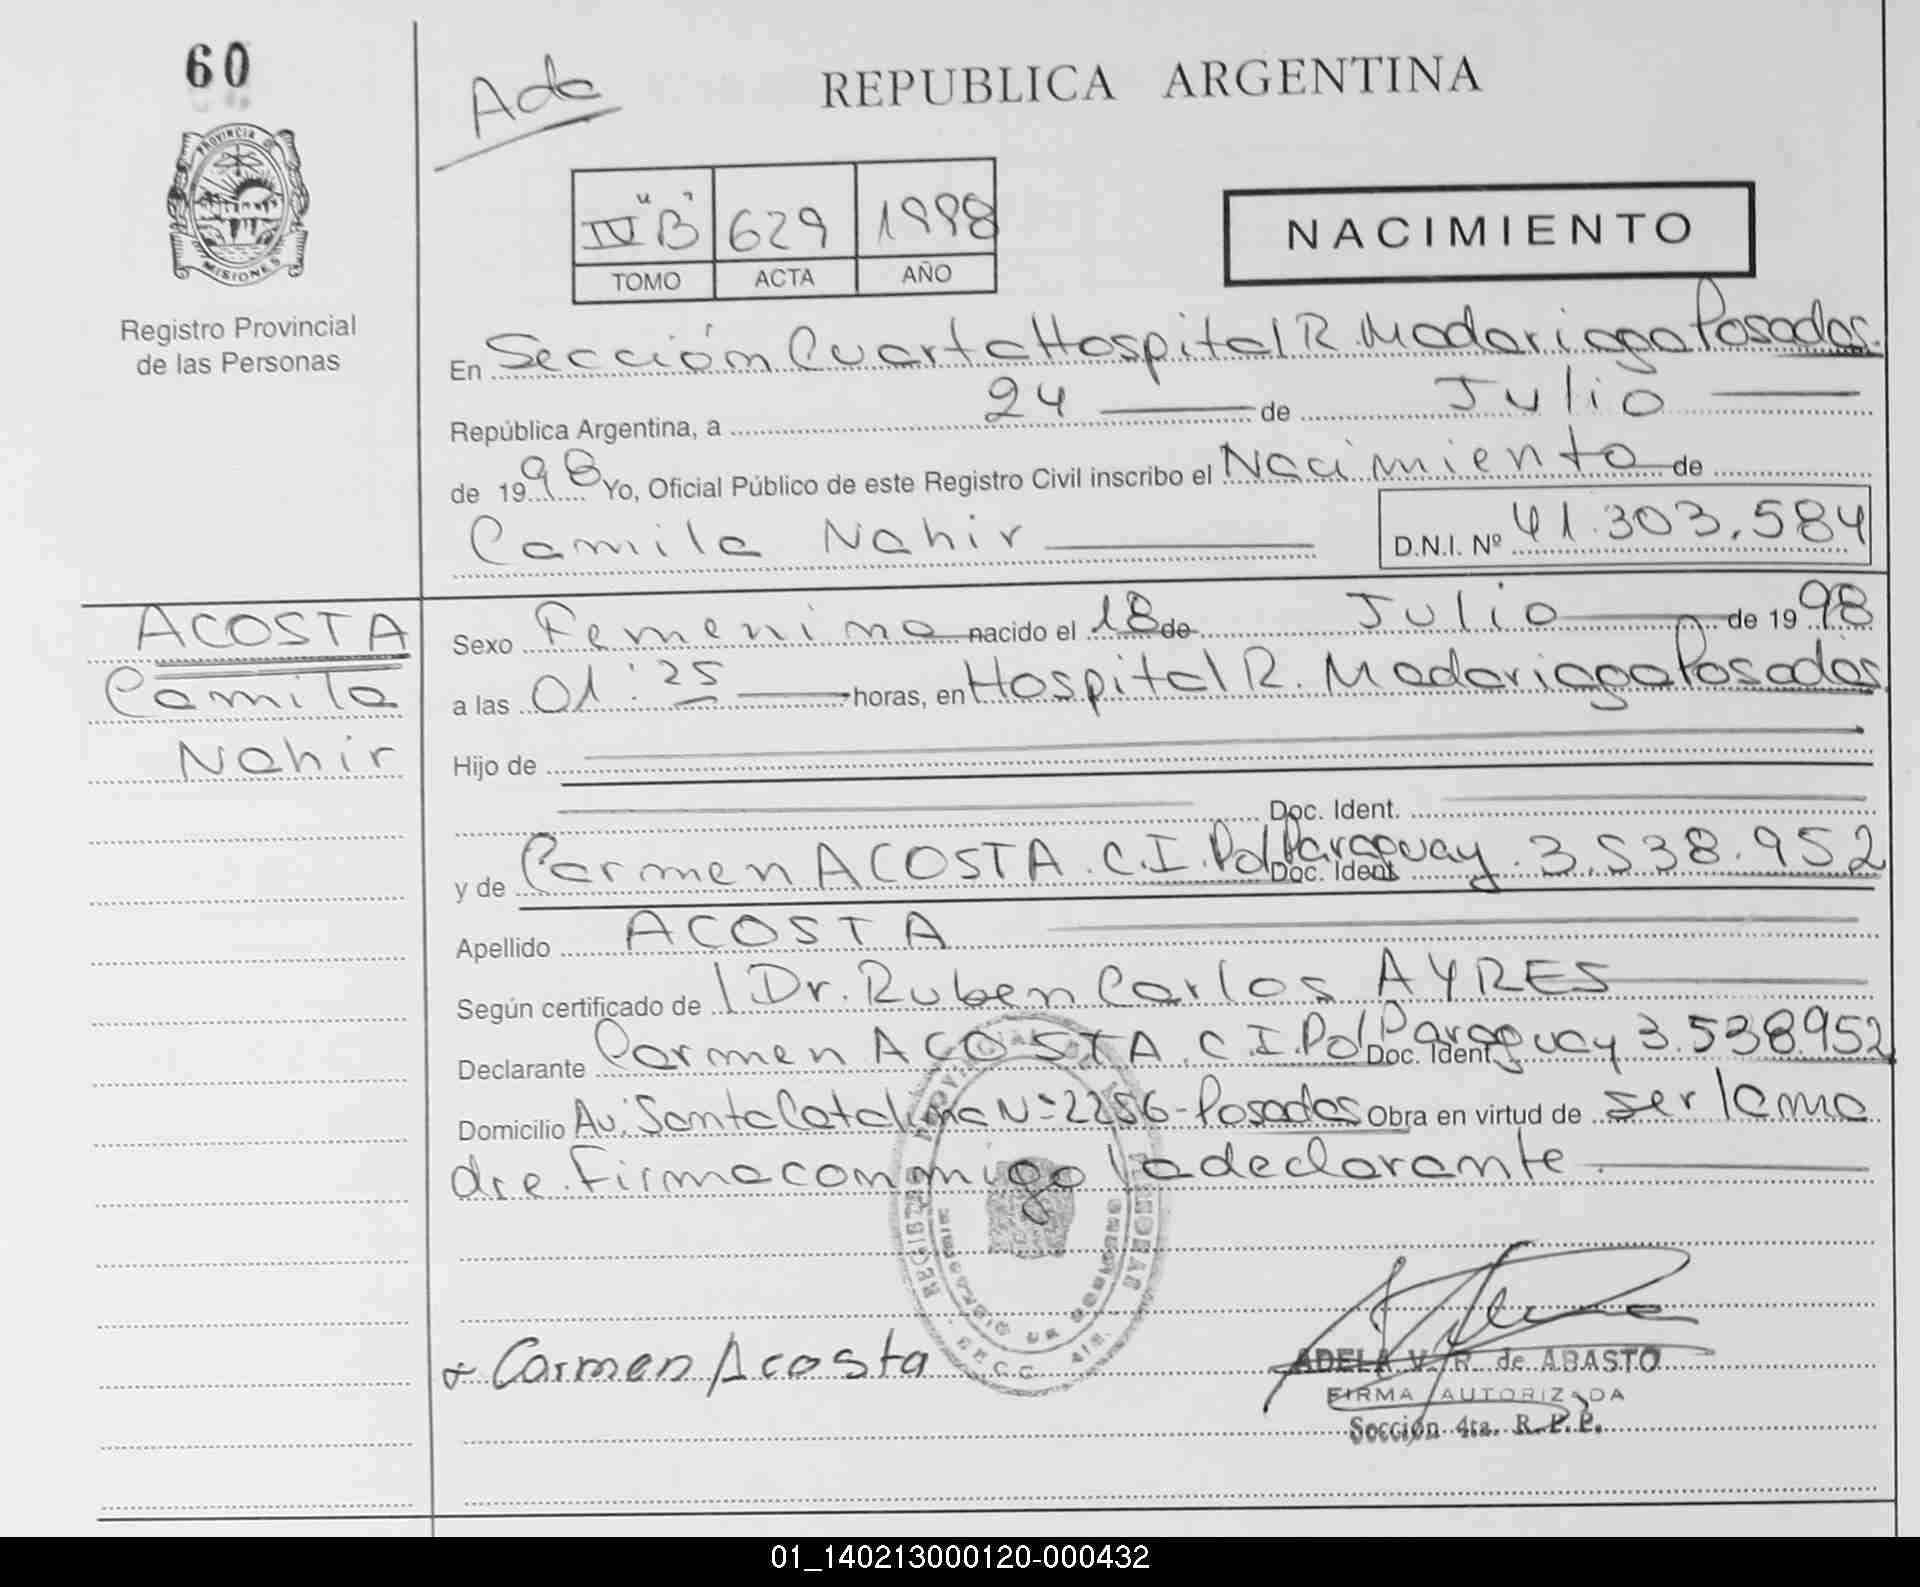 60
Ada
REPUBLICA ARGENTINA
PROVINCIA DE
MISIONES
Registro Provincial
de las Personas
IV "B" 629 1998
TOMO ACTA AÑO
NACIMIENTO
En Sección Cuarta Hospital R. Madariaga Posadas.
República Argentina, a 24 de Julio
de 1998 Yo, Oficial Público de este Registro Civil inscribo el Nacimiento de
Camila Nahir D.N.I. Nº 41.303.584
ACOSTA
Camila
Nahir
Sexo Femenino nacido el 18 de Julio de 1998
a las 01:25 horas, en Hospital R. Madariaga Posadas
Hijo de
Doc. Ident.
y de Carmen ACOSTA. C.I. Pol Paraguay. 3.538.952
Doc. Ident
Apellido ACOSTA
Según certificado de l Dr. Ruben Carlos AYRES
Declarante Carmen ACOSTA. C.I. Pol Paraguay 3.538.952
Doc. Ident.
Domicilio Av. Santa Catalina Nº 2256 - Posadas Obra en virtud de ser la ma
dre. Firma conmigo la declarante.
Carmen Acosta
ADELA V. R. de ABASTO
FIRMA AUTORIZADA
Sección 4ta. R.P.P.
01_140213000120-000432